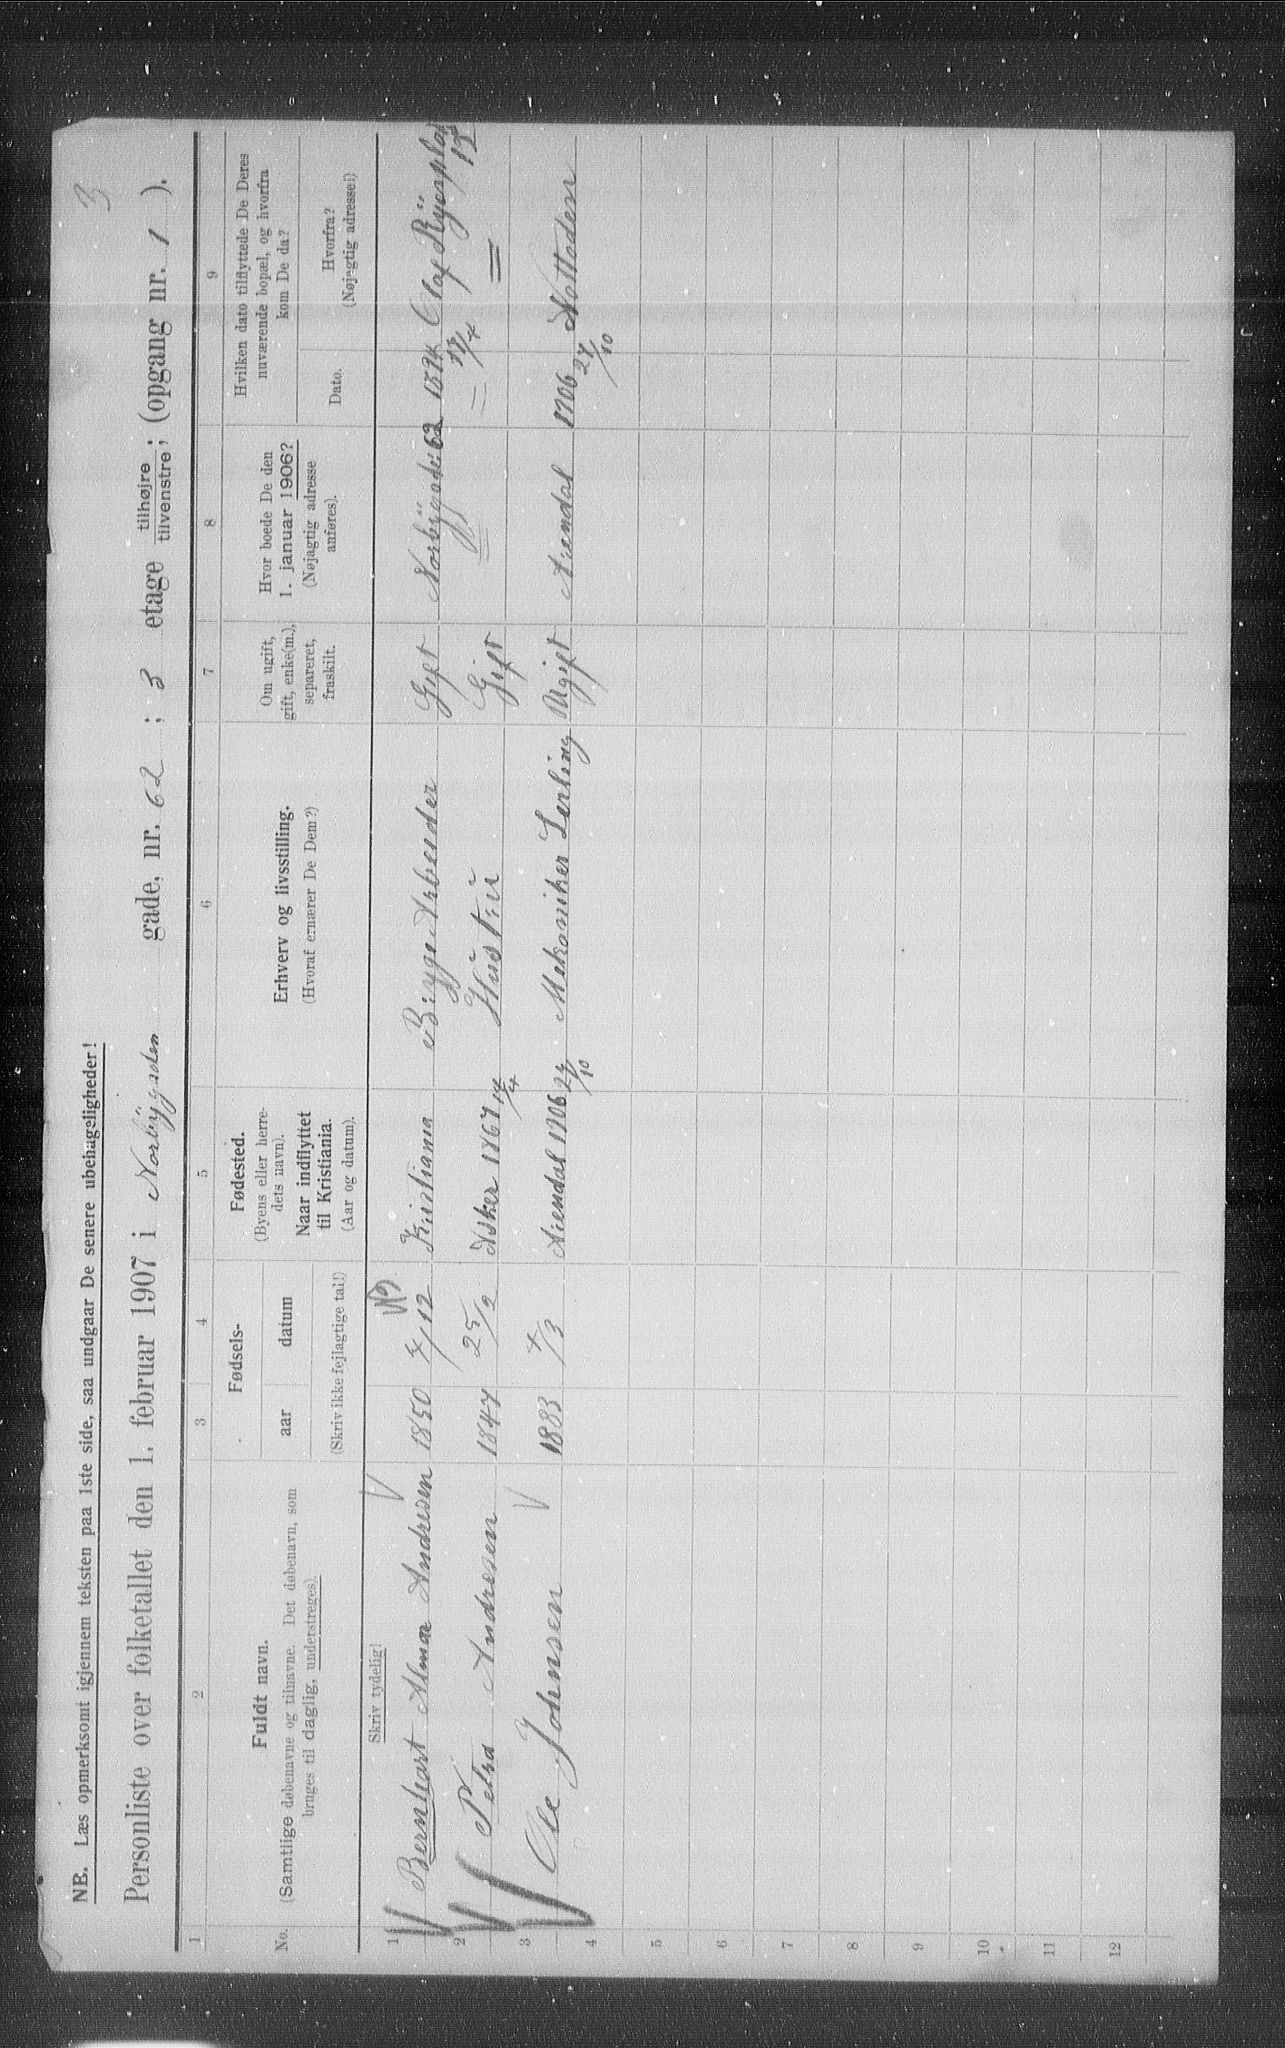 3
NB. Læs opmerksomt igjennem teksten paa 1ste side, saa undgaar De senere ubehageligheder!
Personliste over folketallet den 1. februar 1907 i Norbygaden gade, nr. 62 ; 3 etage tilhøjre / tilvenstre ; (opgang nr. 1 ).
1 2 3 4 5 6 7 8 9
No.
Fuldt navn.
(Samtlige døbenavne og tilnavne. Det døbenavn, som
bruges til daglig, understreges).
Fødsels-
aar datum
(Skriv ikke fejlagtige tal!)
Fødested.
(Byens eller herre-
dets navn).
Naar indflyttet
til Kristiania.
(Aar og datum).
Erhverv og livsstilling.
(Hvoraf ernærer De Dem?)
Om ugift,
gift, enke(m.),
separeret,
fraskilt.
Hvor boede De den
1. januar 1906?
(Nøjagtig adresse
anføres).
Hvilken dato tilflyttede De Deres
nuværende bopæl, og hvorfra
kom De da?
Dato.
Hvorfra?
(Nøjagtig adresse!)
Skriv tydelig!
1 Bernhart Almar Andresen 1850 7/12 Kristiania Brygge Arbeider Gift Norbygade 62 1894 17/4 Olaf Ryesplads 12
2 Petra Andresen 1847 25/2 Asker 1867 14/4 Hustru Gift = = =
3 Ole Johnsen 1883 4/3 Arendal 1906 24/10 Mekaniker Lerling Ugift Arendal 1906 24/10 Nottoden
4
5
6
7
8
9
10
11
12